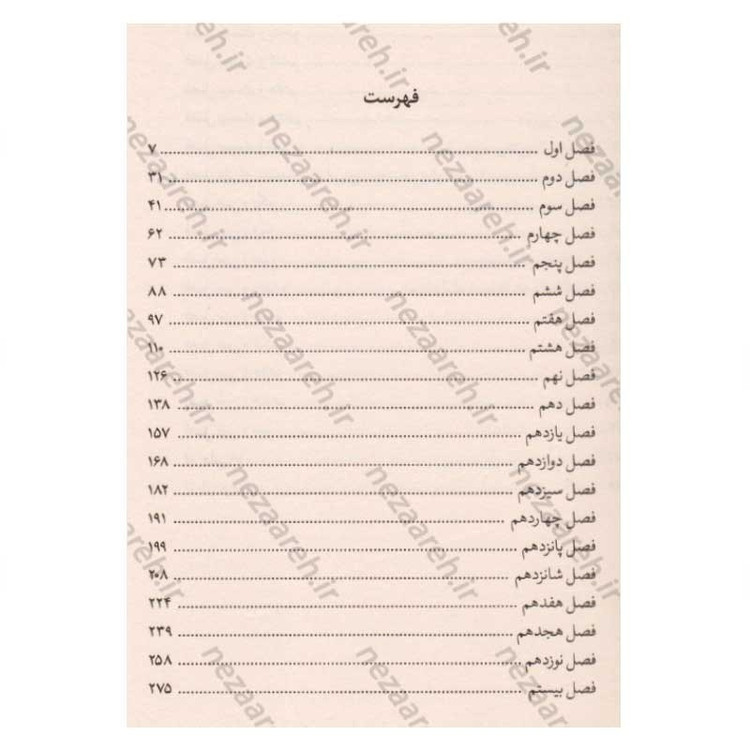 فهرست
فصل اول ........ ۷
فصل دوم ........ ۳۱
فصل سوم ........ ۴۱
فصل چهارم ........ ۶۲
فصل پنجم ........ ۷۳
فصل ششم ........ ۸۸
فصل هفتم ........ ۹۷
فصل هشتم ........ ۱۱۰
فصل نهم ........ ۱۲۶
فصل دهم ........ ۱۳۸
فصل یازدهم ........ ۱۵۷
فصل دوازدهم ........ ۱۶۸
فصل سیزدهم ........ ۱۸۲
فصل چهاردهم ........ ۱۹۱
فصل پانزدهم ........ ۱۹۹
فصل شانزدهم ........ ۲۰۸
فصل هفدهم ........ ۲۲۴
فصل هجدهم ........ ۲۳۹
فصل نوزدهم ........ ۲۵۸
فصل بیستم ........ ۲۷۵
nezaareh.ir